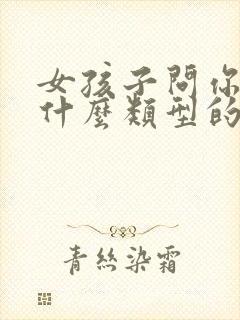 女孩子問你
什麼類型的
青絲染霜